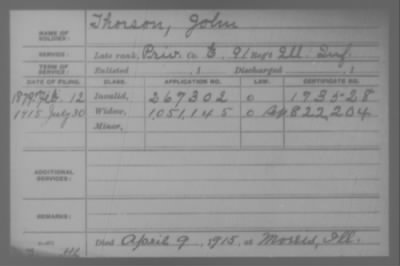 NAME OF SOLDIER: Thorson, John
SERVICE: Late rank, Priv. Co. E, 91 Reg't Ill. Inf.
TERM OF SERVICE: Enlisted , 1 Discharged , 1
DATE OF FILING. CLASS. APPLICATION NO. LAW. CERTIFICATE NO.
1879 Feb. 12 Invalid, 267302 0 173528
1915 July 30 Widow, 1,051,145 0 822,204
Minor,
ADDITIONAL SERVICES:
REMARKS:
Died April 9, 1915, at Ill.